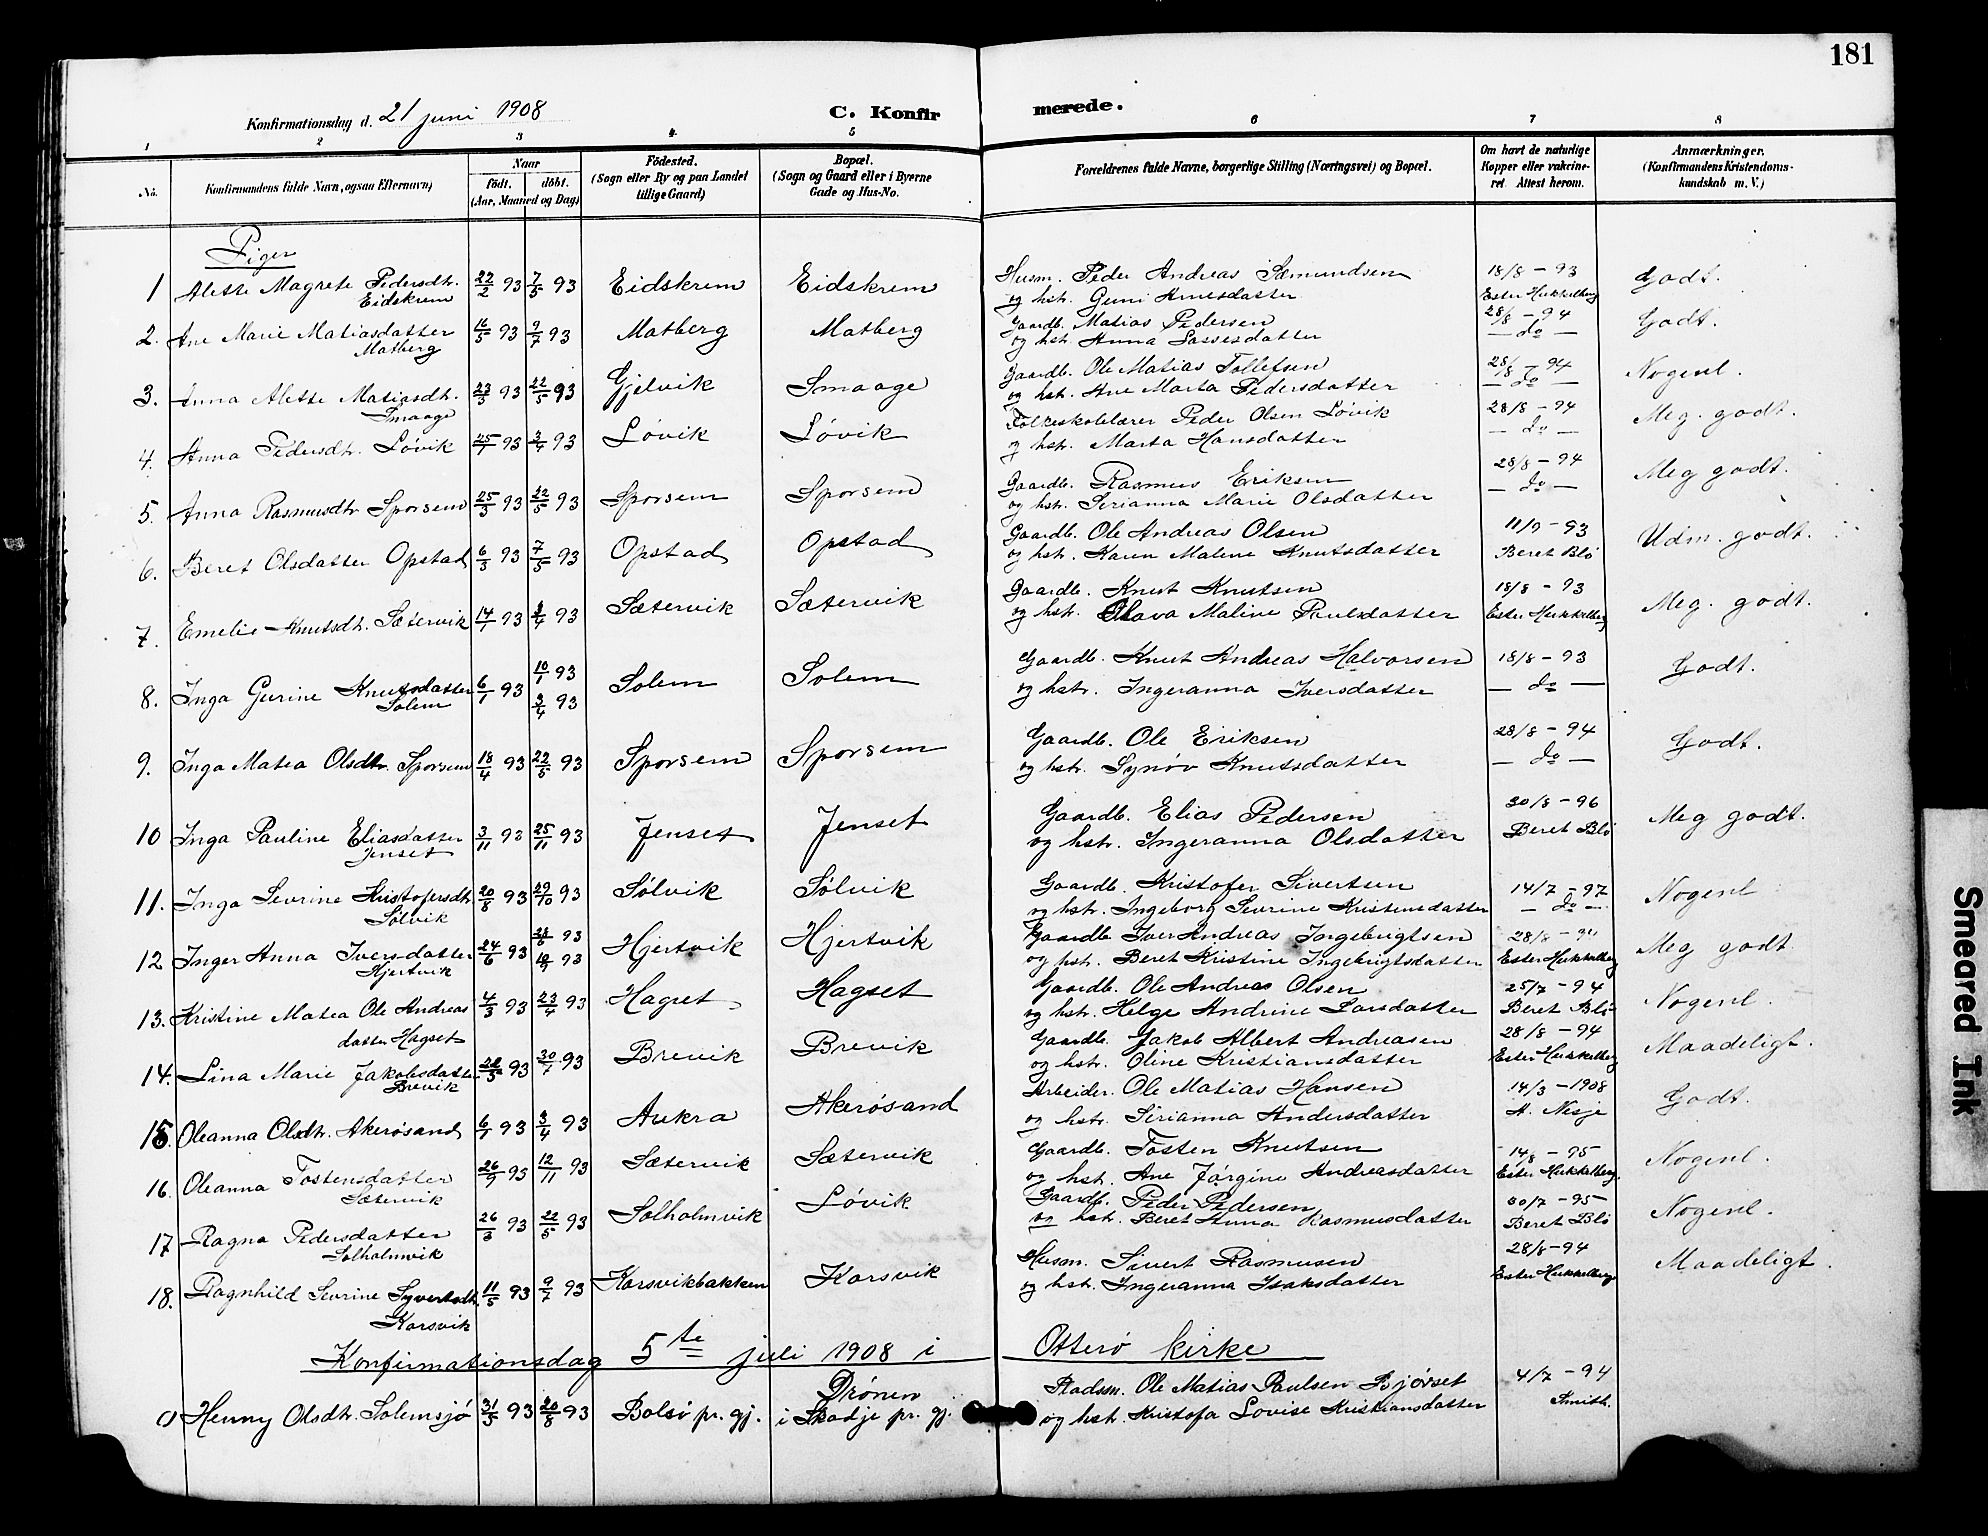 181
Konfirmationsdag d. 21 juni 1908
C. Konfirmerede.
1 2 3 4 5 6 7 8
No.
Konfirmandens fulde Navn, ogsaa Efternavn)
Naar
født. døbt.
(Aar, Maaned og Dag)
Fødested.
(Sogn eller By og paa Landet
tillige Gaard)
Bopæl.
(Sogn og Gaard eller i Byerne
Gade og Hus-No.
Forældrenes fulde Navne, borgerlige Stilling (Næringsvei) og Bopæl.
Om havt de naturlige
Kopper eller vakcine-
ret Attest herom.
Anmærkninger.
(Konfirmandens Kristendoms-
kundskab m. V.)
Piger
1 Alette Magrete Pedersdtr. Eidskrem 22/2 93 7/5 93 Eidskrem Eidskrem Husm. Peder Andreas Sæmundsen 18/8 - 93 Godt.
og hst. Guni Knutsdatter Ester Hukkelberg
2. Ane Marie Matiasdatter Matberg 16/5 93 9/7 93 Matberg Matberg Gaardb. Matias Pedersen 28/8 - 94 Godt.
og hst. Anna Lassesdatter — do —
3. Anna Alette Matiasdt. Smaage 23/3 93 22/5 93 Gjelvik Smaage Gaardb. Ole Matias Tollefsen 28/8 - 94 Nogenl.
og hst. Ane Marta Pedersdatter — do —
4. Anna Pedersdt. Løvik 25/1 93 3/4 93 Løvik Løvik Folkeskolelærer Peder Olsen Løvik 28/8 - 94 Meg. godt.
og hst. Marta Hansdatter — do —
5. Anna Rasmusdtr Sporsem 25/3 93 22/5 93 Sporsem Sporsem Gaardb. Rasmus Eriksen 28/8 - 94 Meg godt.
og hst. Serianna Marie Olsdatter — do —
6. Beret Olsdatter Opstad 6/3 93 7/5 93 Opstad Opstad Gaardb. Ole Andreas Olsen 11/9 - 93 Udm. godt.
og hst. Karen Malene Knutsdatter Beret Blø
7. Emelie Knutsdt. Sætervik 14/1 93 3/4 93 Sætervik Sætervik Gaardb. Knut Knutsen 18/8 - 93 Meg. godt.
og hst. Olava Maline Paulsdatter Ester Hukkelberg
8. Inga Gurine Knutsdatter Solem 6/1 93 10/1 93 3/4 93 Solem Solem Gaardb. Knut Andreas Halvorsen 18/8 - 93 Godt.
og hst. Ingeranna Iversdatter — do —
9. Inga Matea Olsdtr. Sporsem 18/4 93 22/5 93 Sporsem Sporsem Gaardb. Ole Eriksen 28/8 - 94 Godt.
og hst. Synøv Knutsdatter — do —
10 Inga Pauline Eliasdatter Jenset 3/11 93 25/11 93 Jenset Jenset Gaardb. Elias Pedersen 20/8 - 96 Meg godt.
og hst. Ingeranna Olsdatter Beret Blø
11. Inga Sevrine Kristofersdt. Sølvik 20/8 93 29/10 93 Sølvik Sølvik Gaardb. Kristofer Sivertsen 14/7 - 97 Nogenl
og hst. Ingeborg Sevrine Kristensdatter — do —
12 Inger Anna Iversdatter Hjertvik 24/6 93 93 93 Hjertvik Hjertvik Gaardb Iver Andreas Ingebrigtsen 28/8 - Meg godt
og hst. Beret Kristine Ingebrigtsdatter Ester Hukkelberg
13. Kristine Matea Ole Andreas datter Hagset 4/3 93 23/4 93 Hagset Hagset Gaardb. Ole Andreas Olsen 25/7 - 94 Nogenl.
og hst. Helge Andrine Larsdatter Beret Blø
14. Lina Marie Jakobsdatter Brevik 93 30/7 93 Brevik Brevik Gaardb. Jakob Albert Andreasen 28/8 - 94 Maadeligt.
og hst. Oline Kristiansdatter Ester Hukkelberg
15. Oleanna Olsdtr. Akerøsand 6/1 93 3/4 93 Aukra Akerøsand Arbeider. Ole Matias Hansen 14/3 - 1908 Godt.
og hst. Serianna Andersdatter A. Nesje
16. Oleanna Tostensdatter Sætervik 26/9 93 12/11 93 Sætervik Sætervik Gaardb. Tosten Knutsen 14/8 - 95 Nogenl.
og hst. Ane Jørgine Andreasdatter Ester Hukkelberg.
17 Ragna Pedersdatter Solholmvik 26/3 93 22/5 93 Solholmvik Løvik Gaardb. Peder Pedersen 30/7 - 95 Nogenl.
og hst. Beret Anna Rasmusdatter Beret Blø
18. Ragnhild Sevrine Syvertsdt. Korsvik 11/5 93 9/7 93 Korsvikbakken Korsvik Husm. Sivert Rasmusen 28/8 - 94 Maadeligt.
og hst. Ingeranna Isaksdatter Ester Hukkelberg
Konfirmationsdag 5te juli 1908 i Otterø kirke
Henny Olsdtr. Solemsjø 31/5 93 20/8 93 Bolsø pr. gj. Drønen i Skodje pr. gj. Stadsm. Ole Matias Paulsen Bjørset 4/7 - 94
og hst. Kristofa Lovise Kristiansdatter Smith.
Smeared Ink